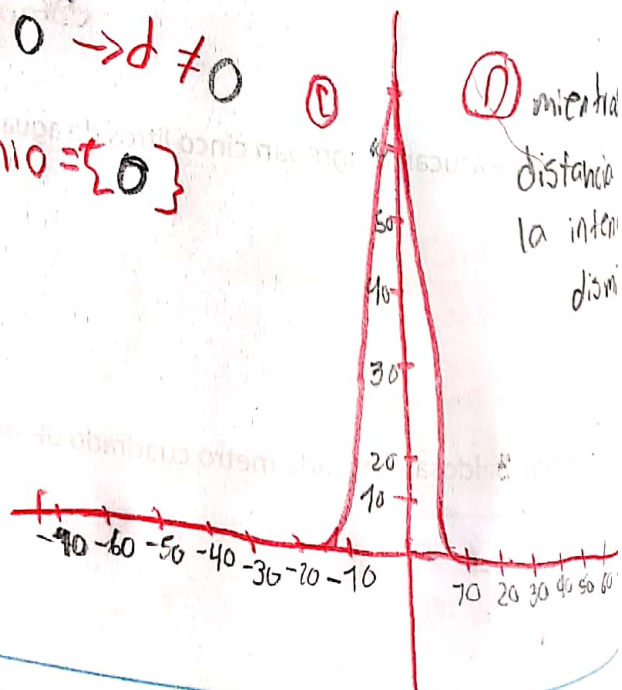 0 → d ≠ 0
nio = {0}
C
D mientra
distancia
la inten
dism
50
40
30
20
10
-60 -50 -40 -30 -20 -10
10 20 30 40 50 60